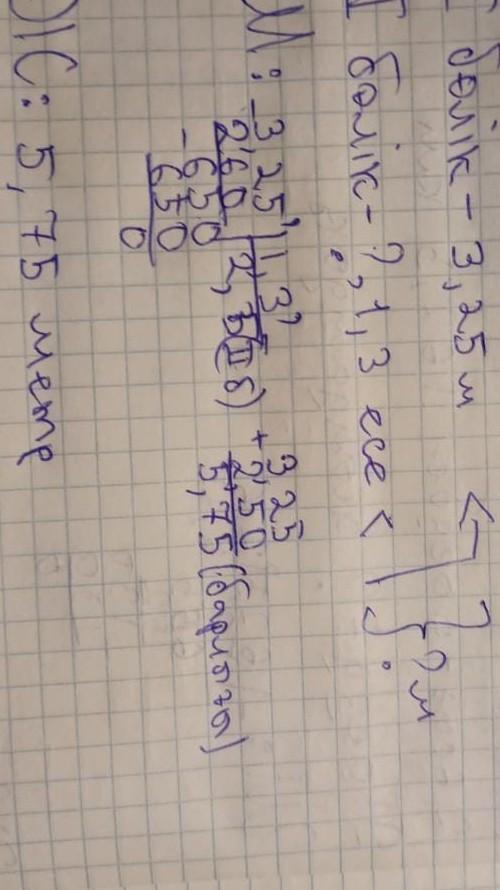 I бөлік - 3,25 м
II бөлік - ?, 1,3 есе < } ? м
Ш: - 3 25, | 1, 3,
2 60 | 2, 5 (II б) + 3 25
- 650 2, 50
650 5, 75 (барлығы)
0
Ж: 5, 75 метр